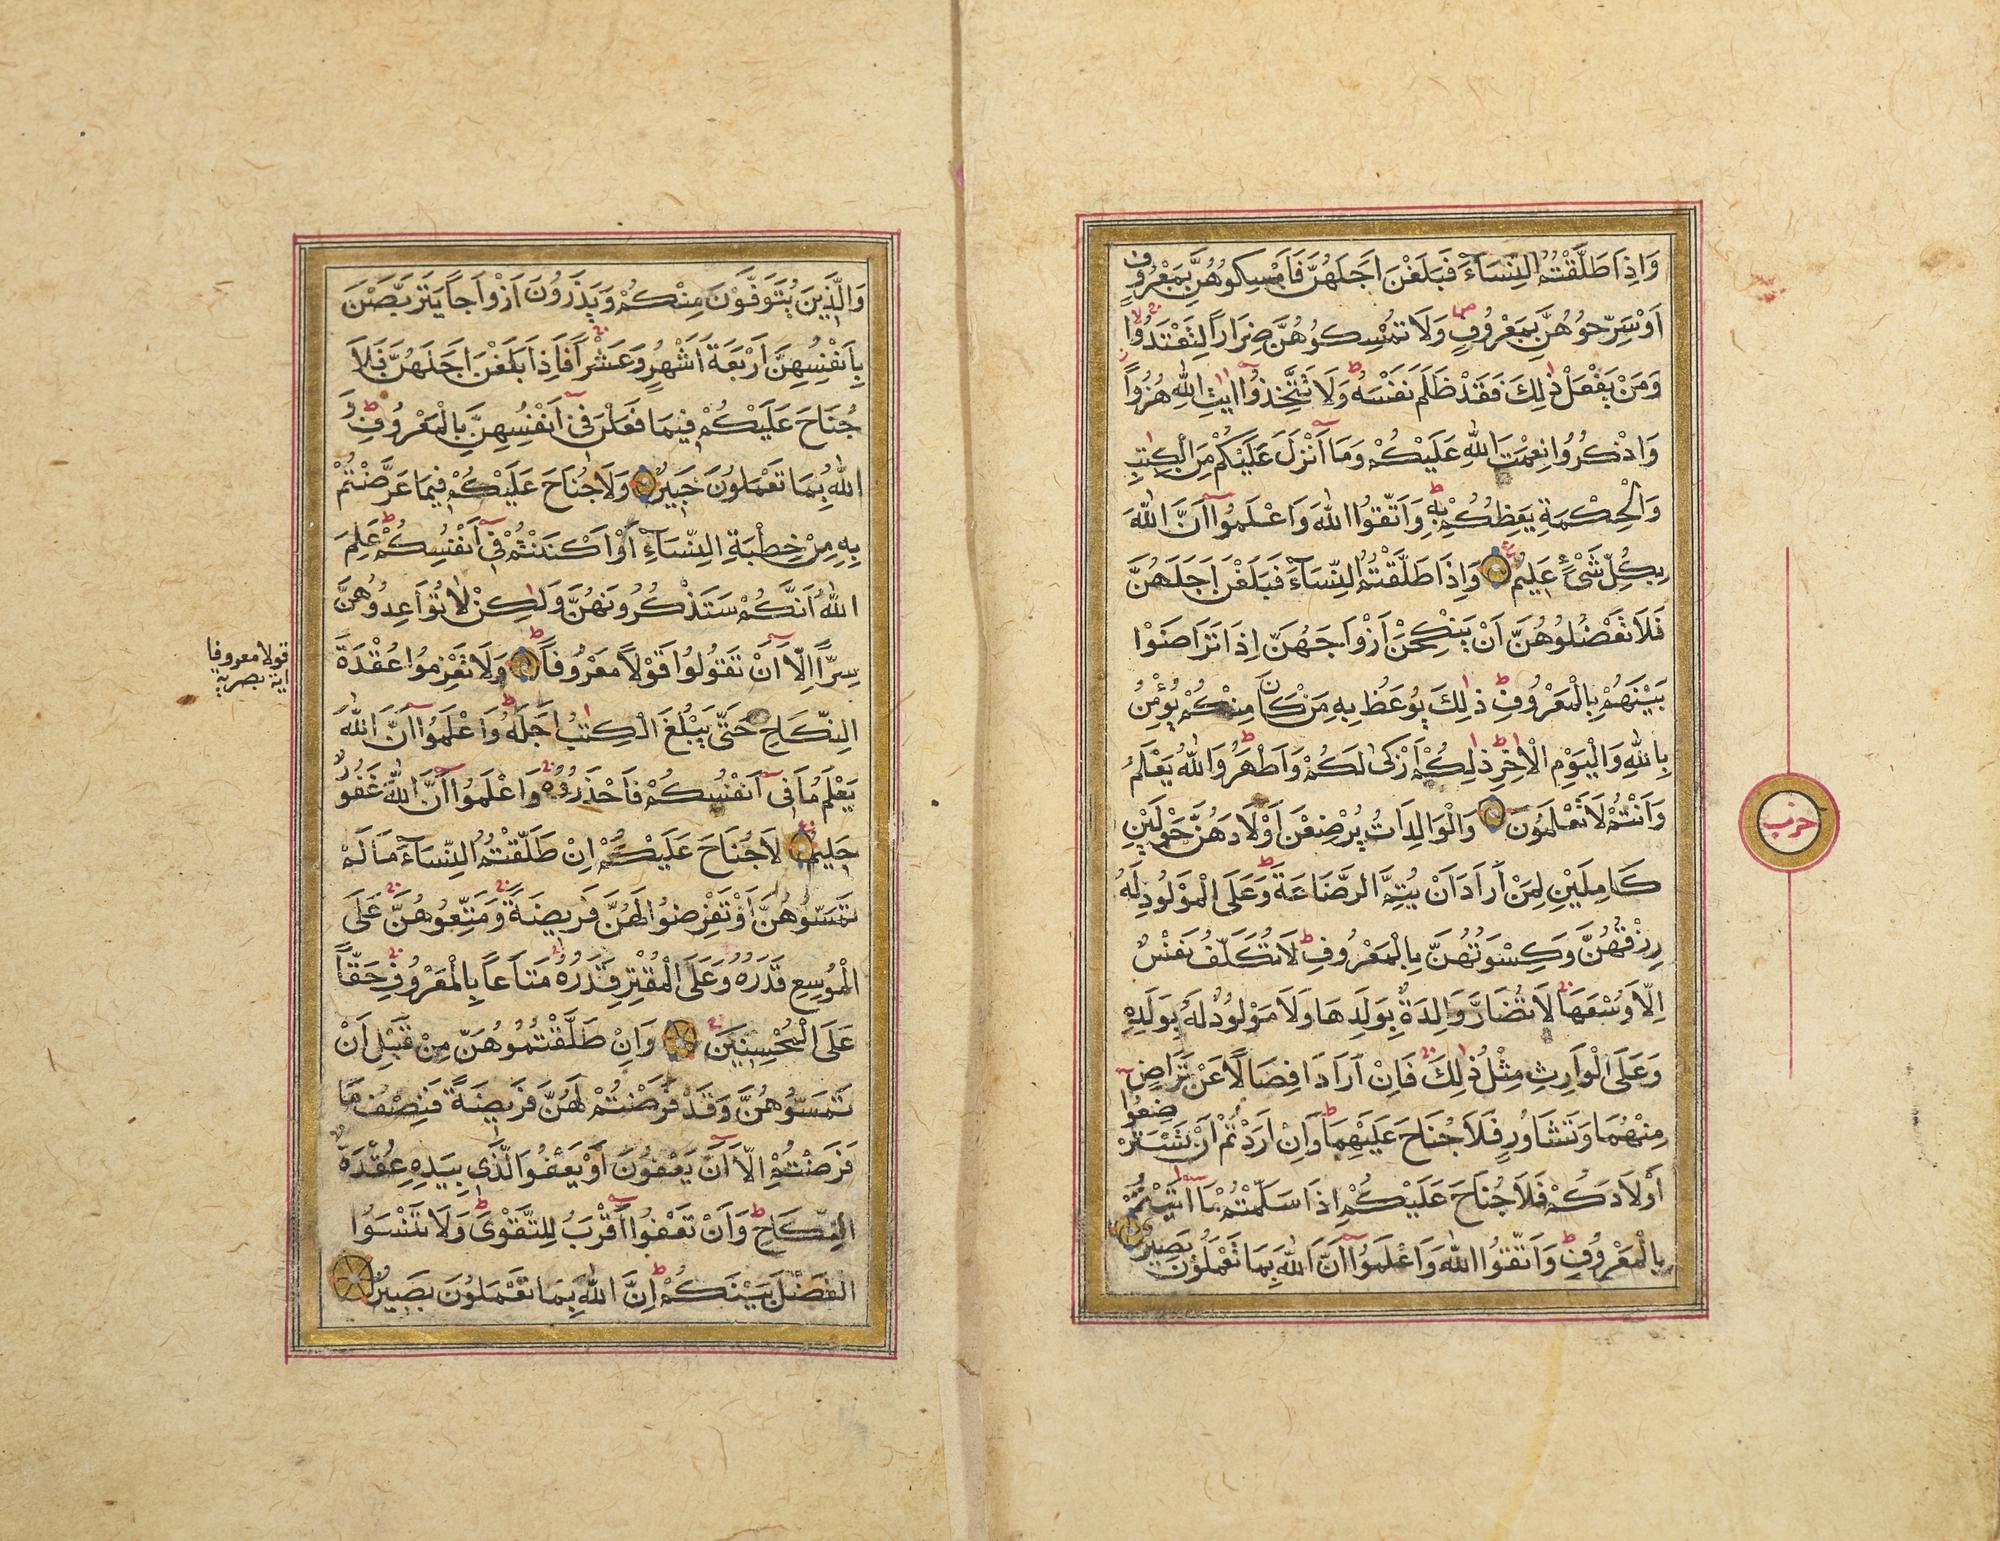 وَاِذَا طَلَّقْتُمُ النِّسَآءَ فَبَلَغْنَ اَجَلَهُنَّ فَاَمْسِكُوهُنَّ بِمَعْرُوفٍ
اَوْ سَرِّحُوهُنَّ بِمَعْرُوفٍ وَلَا تُمْسِكُوهُنَّ ضِرَاراً لِتَعْتَدُوا
وَمَنْ يَفْعَلْ ذٰلِكَ فَقَدْ ظَلَمَ نَفْسَهُ وَلَا تَتَّخِذُوا اٰيٰتِ اللّٰهِ هُزُواً
وَاذْكُرُوا نِعْمَتَ اللّٰهِ عَلَيْكُمْ وَمَا اَنْزَلَ عَلَيْكُمْ مِنَ الْكِتٰبِ
وَالْحِكْمَةِ يَعِظُكُمْ بِهِ وَاتَّقُوا اللّٰهَ وَاعْلَمُوا اَنَّ اللّٰهَ
بِكُلِّ شَيْءٍ عَلِيمٌ وَاِذَا طَلَّقْتُمُ النِّسَآءَ فَبَلَغْنَ اَجَلَهُنَّ
فَلَا تَعْضُلُوهُنَّ اَنْ يَنْكِحْنَ اَزْوَاجَهُنَّ اِذَا تَرَاضَوْا
بَيْنَهُمْ بِالْمَعْرُوفِ ذٰلِكَ يُوعَظُ بِهِ مَنْ كَانَ مِنْكُمْ يُؤْمِنُ
بِاللّٰهِ وَالْيَوْمِ الْاٰخِرِ ذٰلِكُمْ اَزْكٰى لَكُمْ وَاَطْهَرُ وَاللّٰهُ يَعْلَمُ
وَاَنْتُمْ لَا تَعْلَمُونَ وَالْوَالِدَاتُ يُرْضِعْنَ اَوْلَادَهُنَّ حَوْلَيْنِ
كَامِلَيْنِ لِمَنْ اَرَادَ اَنْ يُتِمَّ الرَّضَاعَةَ وَعَلَى الْمَوْلُودِ لَهُ
رِزْقُهُنَّ وَكِسْوَتُهُنَّ بِالْمَعْرُوفِ لَا تُكَلَّفُ نَفْسٌ
اِلَّا وُسْعَهَا لَا تُضَارَّ وَالِدَةٌ بِوَلَدِهَا وَلَا مَوْلُودٌ لَهُ بِوَلَدِهِ
وَعَلَى الْوَارِثِ مِثْلُ ذٰلِكَ فَاِنْ اَرَادَا فِصَالاً عَنْ تَرَاضٍ
مِنْهُمَا وَتَشَاوُرٍ فَلَا جُنَاحَ عَلَيْهِمَا وَاِنْ اَرَدْتُمْ اَنْ تَسْتَرْضِعُوا
اَوْلَادَكُمْ فَلَا جُنَاحَ عَلَيْكُمْ اِذَا سَلَّمْتُمْ مَا اٰتَيْتُمْ
بِالْمَعْرُوفِ وَاتَّقُوا اللّٰهَ وَاعْلَمُوا اَنَّ اللّٰهَ بِمَا تَعْمَلُونَ بَصِيرٌ
حزب
وَالَّذِينَ يُتَوَفَّوْنَ مِنْكُمْ وَيَذَرُونَ اَزْوَاجاً يَتَرَبَّصْنَ
بِاَنْفُسِهِنَّ اَرْبَعَةَ اَشْهُرٍ وَعَشْراً فَاِذَا بَلَغْنَ اَجَلَهُنَّ فَلَا
جُنَاحَ عَلَيْكُمْ فِيمَا فَعَلْنَ فِي اَنْفُسِهِنَّ بِالْمَعْرُوفِ وَ
اللّٰهُ بِمَا تَعْمَلُونَ خَبِيرٌ وَلَا جُنَاحَ عَلَيْكُمْ فِيمَا عَرَّضْتُمْ
بِهِ مِنْ خِطْبَةِ النِّسَآءِ اَوْ اَكْنَنْتُمْ فِي اَنْفُسِكُمْ عَلِمَ
اللّٰهُ اَنَّكُمْ سَتَذْكُرُونَهُنَّ وَلٰكِنْ لَا تُوَاعِدُوهُنَّ
سِرّاً اِلَّا اَنْ تَقُولُوا قَوْلاً مَعْرُوفاً وَلَا تَعْزِمُوا عُقْدَةَ
النِّكَاحِ حَتّٰى يَبْلُغَ الْكِتٰبُ اَجَلَهُ وَاعْلَمُوا اَنَّ اللّٰهَ
يَعْلَمُ مَا فِي اَنْفُسِكُمْ فَاحْذَرُوهُ وَاعْلَمُوا اَنَّ اللّٰهَ غَفُورٌ
حَلِيمٌ لَا جُنَاحَ عَلَيْكُمْ اِنْ طَلَّقْتُمُ النِّسَآءَ مَا لَمْ
تَمَسُّوهُنَّ اَوْ تَفْرِضُوا لَهُنَّ فَرِيضَةً وَمَتِّعُوهُنَّ عَلَى
الْمُوسِعِ قَدَرُهُ وَعَلَى الْمُقْتِرِ قَدَرُهُ مَتَاعاً بِالْمَعْرُوفِ حَقّاً
عَلَى الْمُحْسِنِينَ وَاِنْ طَلَّقْتُمُوهُنَّ مِنْ قَبْلِ اَنْ
تَمَسُّوهُنَّ وَقَدْ فَرَضْتُمْ لَهُنَّ فَرِيضَةً فَنِصْفُ مَا
فَرَضْتُمْ اِلَّا اَنْ يَعْفُونَ اَوْ يَعْفُوَا الَّذِي بِيَدِهِ عُقْدَةُ
النِّكَاحِ وَاَنْ تَعْفُوا اَقْرَبُ لِلتَّقْوٰى وَلَا تَنْسَوُا
الْفَضْلَ بَيْنَكُمْ اِنَّ اللّٰهَ بِمَا تَعْمَلُونَ بَصِيرٌ
قولا معروفا
اية بصريه